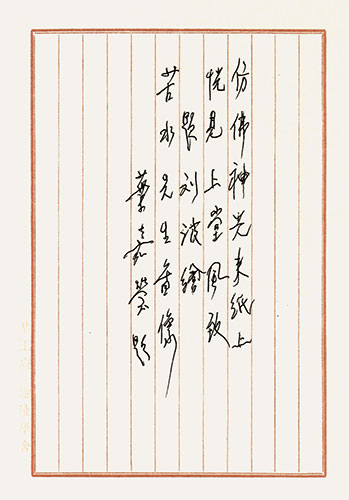 仿佛神光来紙上
恍見上堂風致
題刘波繪
苦水先生畫像
葉嘉瑩題